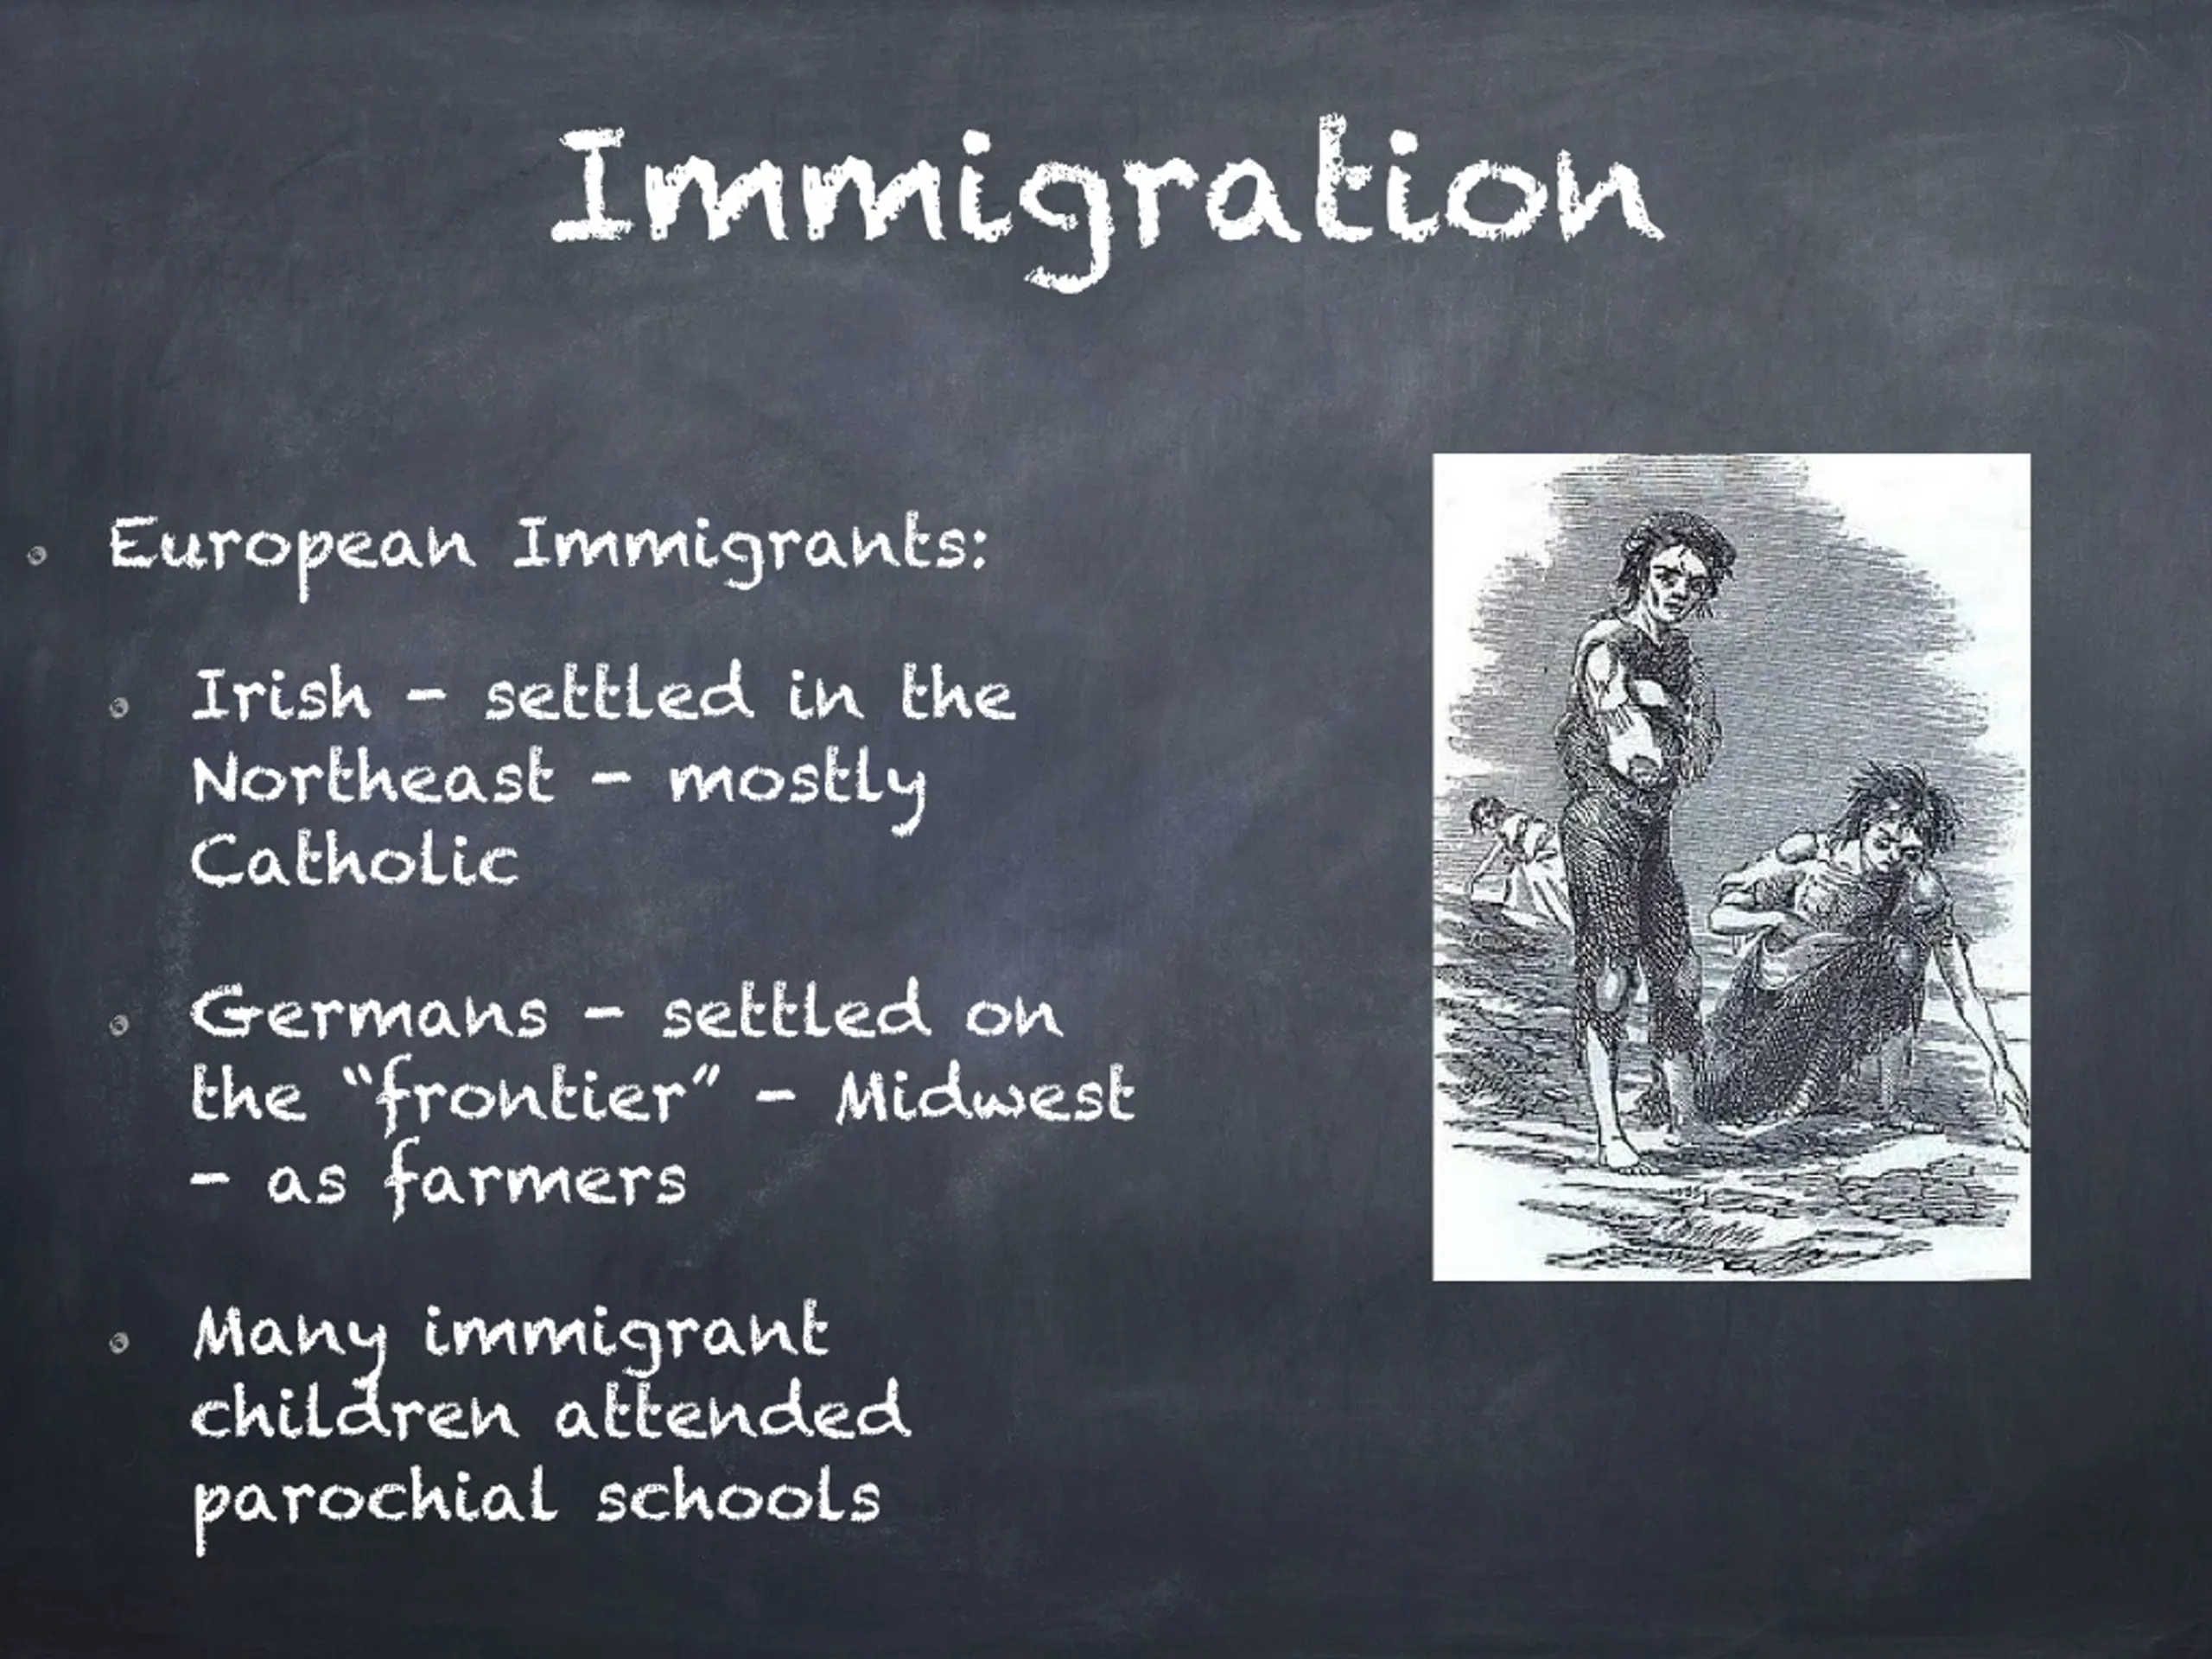 Immigration
European Immigrants:
Irish - settled in the
Northeast - mostly
Catholic
Germans - settled on
the “frontier” - Midwest
- as farmers
Many immigrant
children attended
parochial schools